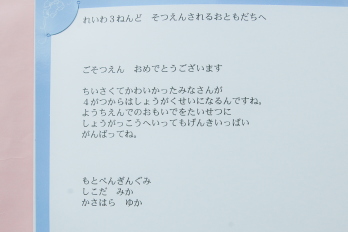 れいわ３ねんど　そつえんされるおともだちへ
ごそつえん　おめでとうございます
ちいさくてかわいかったみなさんが
４がつからはしょうがくせいになるんですね。
ようちえんでのおもいでをたいせつに
しょうがっこうへいってもげんきいっぱい
がんばってね。
もとぺんぎんぐみ
しこだ　みか
かさはら　ゆか